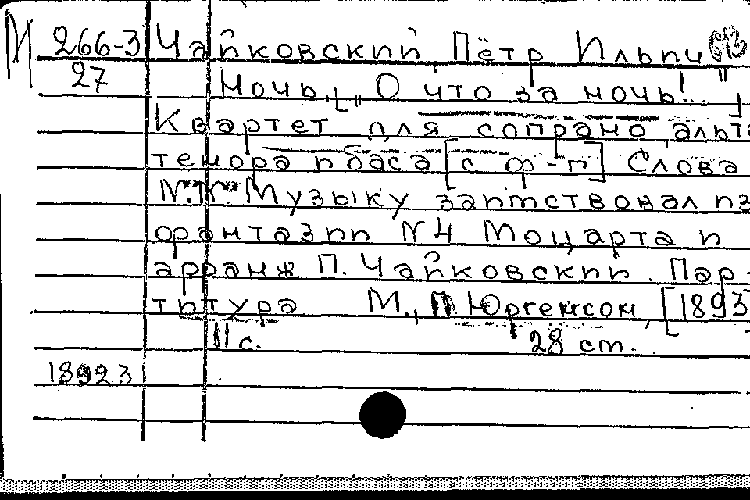 М 266-3 Чайковский Пётр Ильич
27 Ночь. [„О что за ночь!..."]
Квартет для сопрано, альта
тенора и баса [с ф-п] Слова
Музыку заимствовал из
фантазии №4 Моцарта и
арранж П. Чайковский. Пар-
титура М., П. Юргенсон, [1893
11 с. 28 ст.
18923